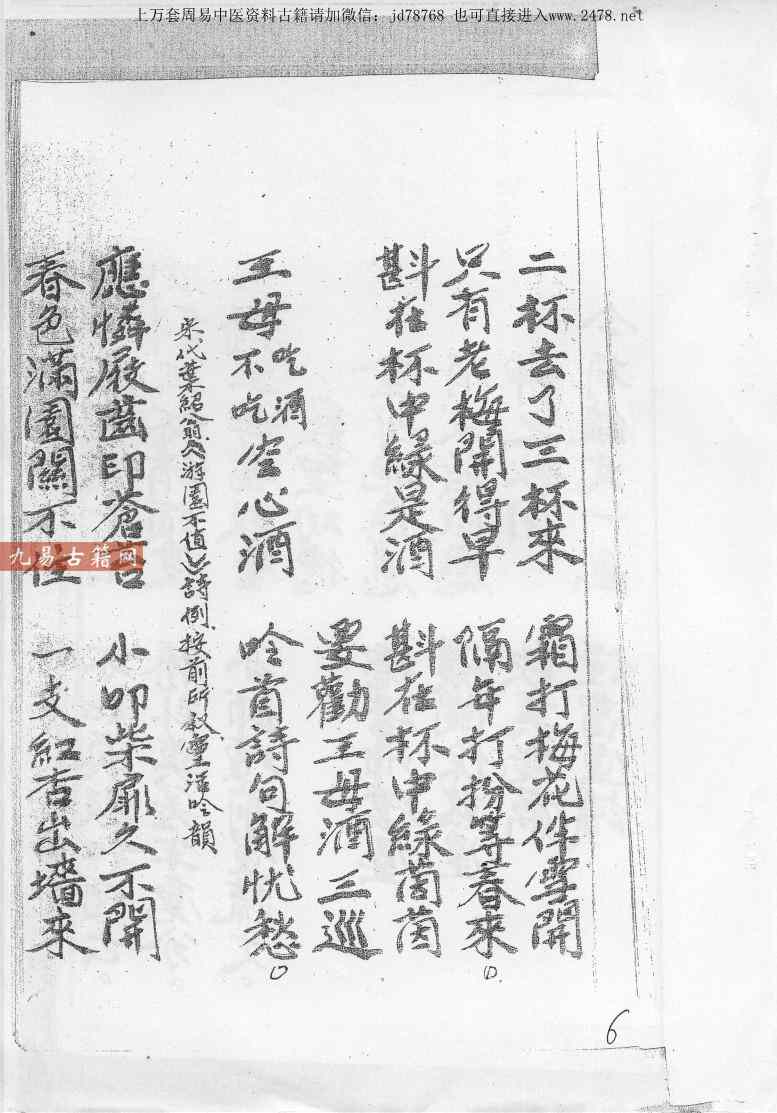 上万套周易中医资料古籍请加微信：jd78768 也可直接进入www.2478.net
二杯去了三杯來 霜打梅花伴雪開
只有老梅開得早 隔年打扮等春來
斟在杯中綠是酒 斟在杯中綠茵茵
要勸王母酒三巡
王母吃酒不吃空心酒 吟首詩句解忧愁
宋代葉紹翁《游園不值》詩例.按前所叙靈活吟韻
應憐屐齒印蒼苔 小叩柴扉久不開
春色滿園關不住 一支紅杏出墻來
九易古籍网
6